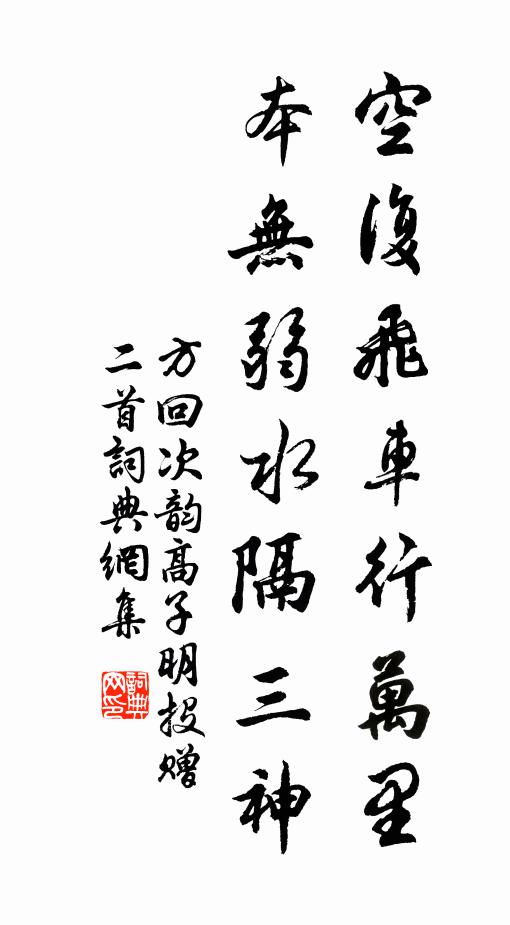 空復飛車行萬里
本無弱水隔三神
方回次韵高子明投赠
二首詞典網集
詞典網印